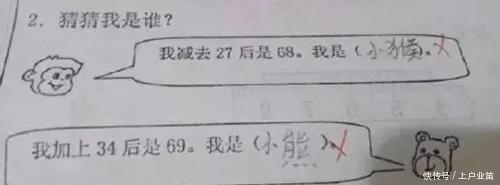 2．猜猜我是谁？
我减去27后是68。我是（小猴）。
我加上34后是69。我是（小熊）。
快传号/上户业苗